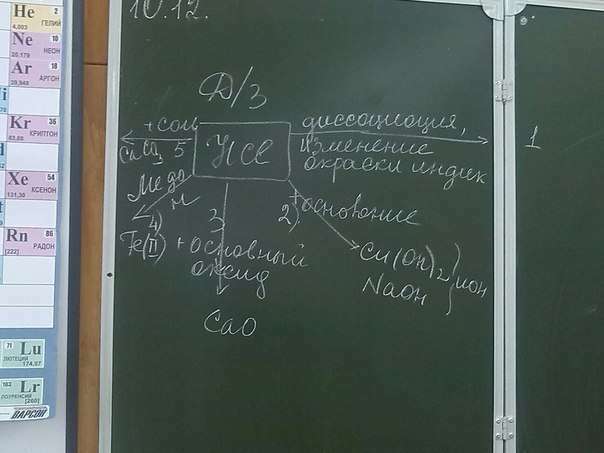 He 2
4,003 ГЕЛИЙ
Ne 10
20,179 НЕОН
Ar 18
39,948 АРГОН
Kr 36
83,80 КРИПТОН
Xe 54
131,30 КСЕНОН
Rn 86
[222] РАДОН
71 Lu
ЛЮТЕЦИЙ
174,97
103 Lr
ЛОУРЕНСИЙ
[260]
ВАРСОН
10.12.
Д/З
+ соль
CaCO3 5
HCl
диссоциация,
изменение
окраски индик
1
Ме до
H
4)
Fe(II)
3
+ основный
оксид
CaO
2) + основание
Cu(OH)2
NaOH
} ион